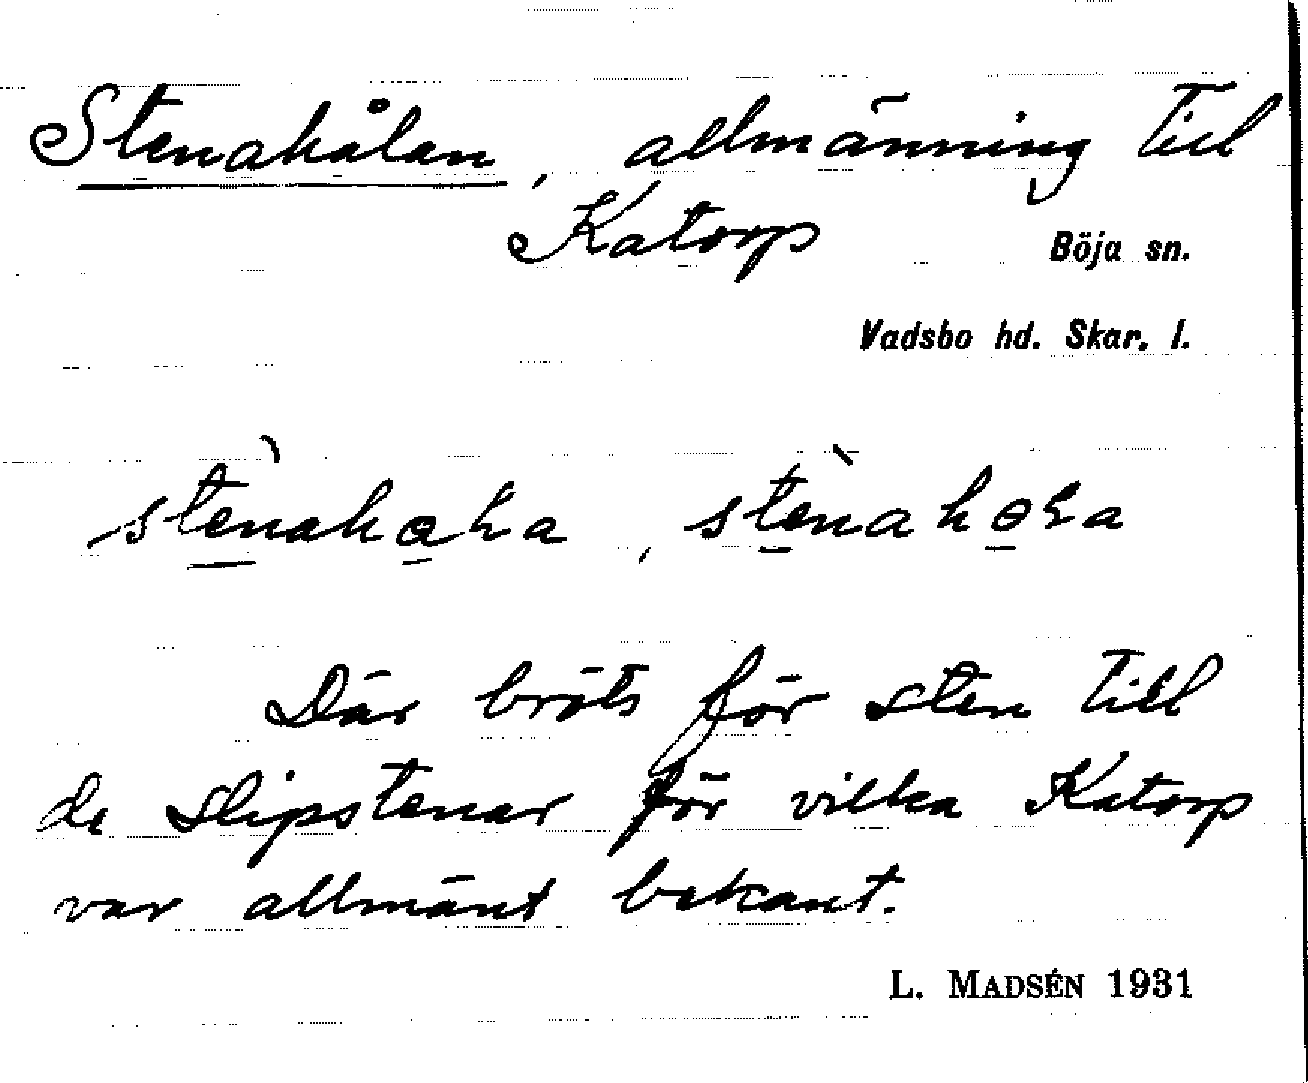 Stenahålan, allmänning till
Katorp
Böja sn.
Vadsbo hd. Skar. l.
Där bröts för sten till
de slipstenar för vilka Katorp
var allmänt bekant.
L. MADSÉN 1931